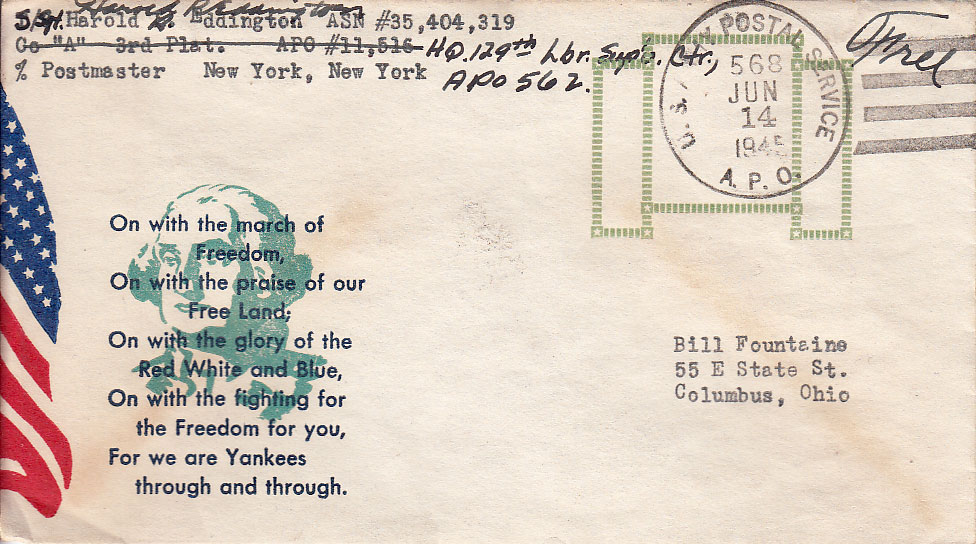 S/Sgt. Harold D. Eddington ASN #35,404,319
Co "A" 3rd Plat. APO #11,516 HQ. 129th
APO 562.
% Postmaster New York, New York
Free
U.S. POSTAL SERVICE
568
JUN
14
1945
A.P.O.
On with the march of
Freedom,
On with the praise of our
Free Land;
On with the glory of the
Red White and Blue,
On with the fighting for
the Freedom for you,
For we are Yankees
through and through.
Bill Fountaine
55 E State St.
Columbus, Ohio